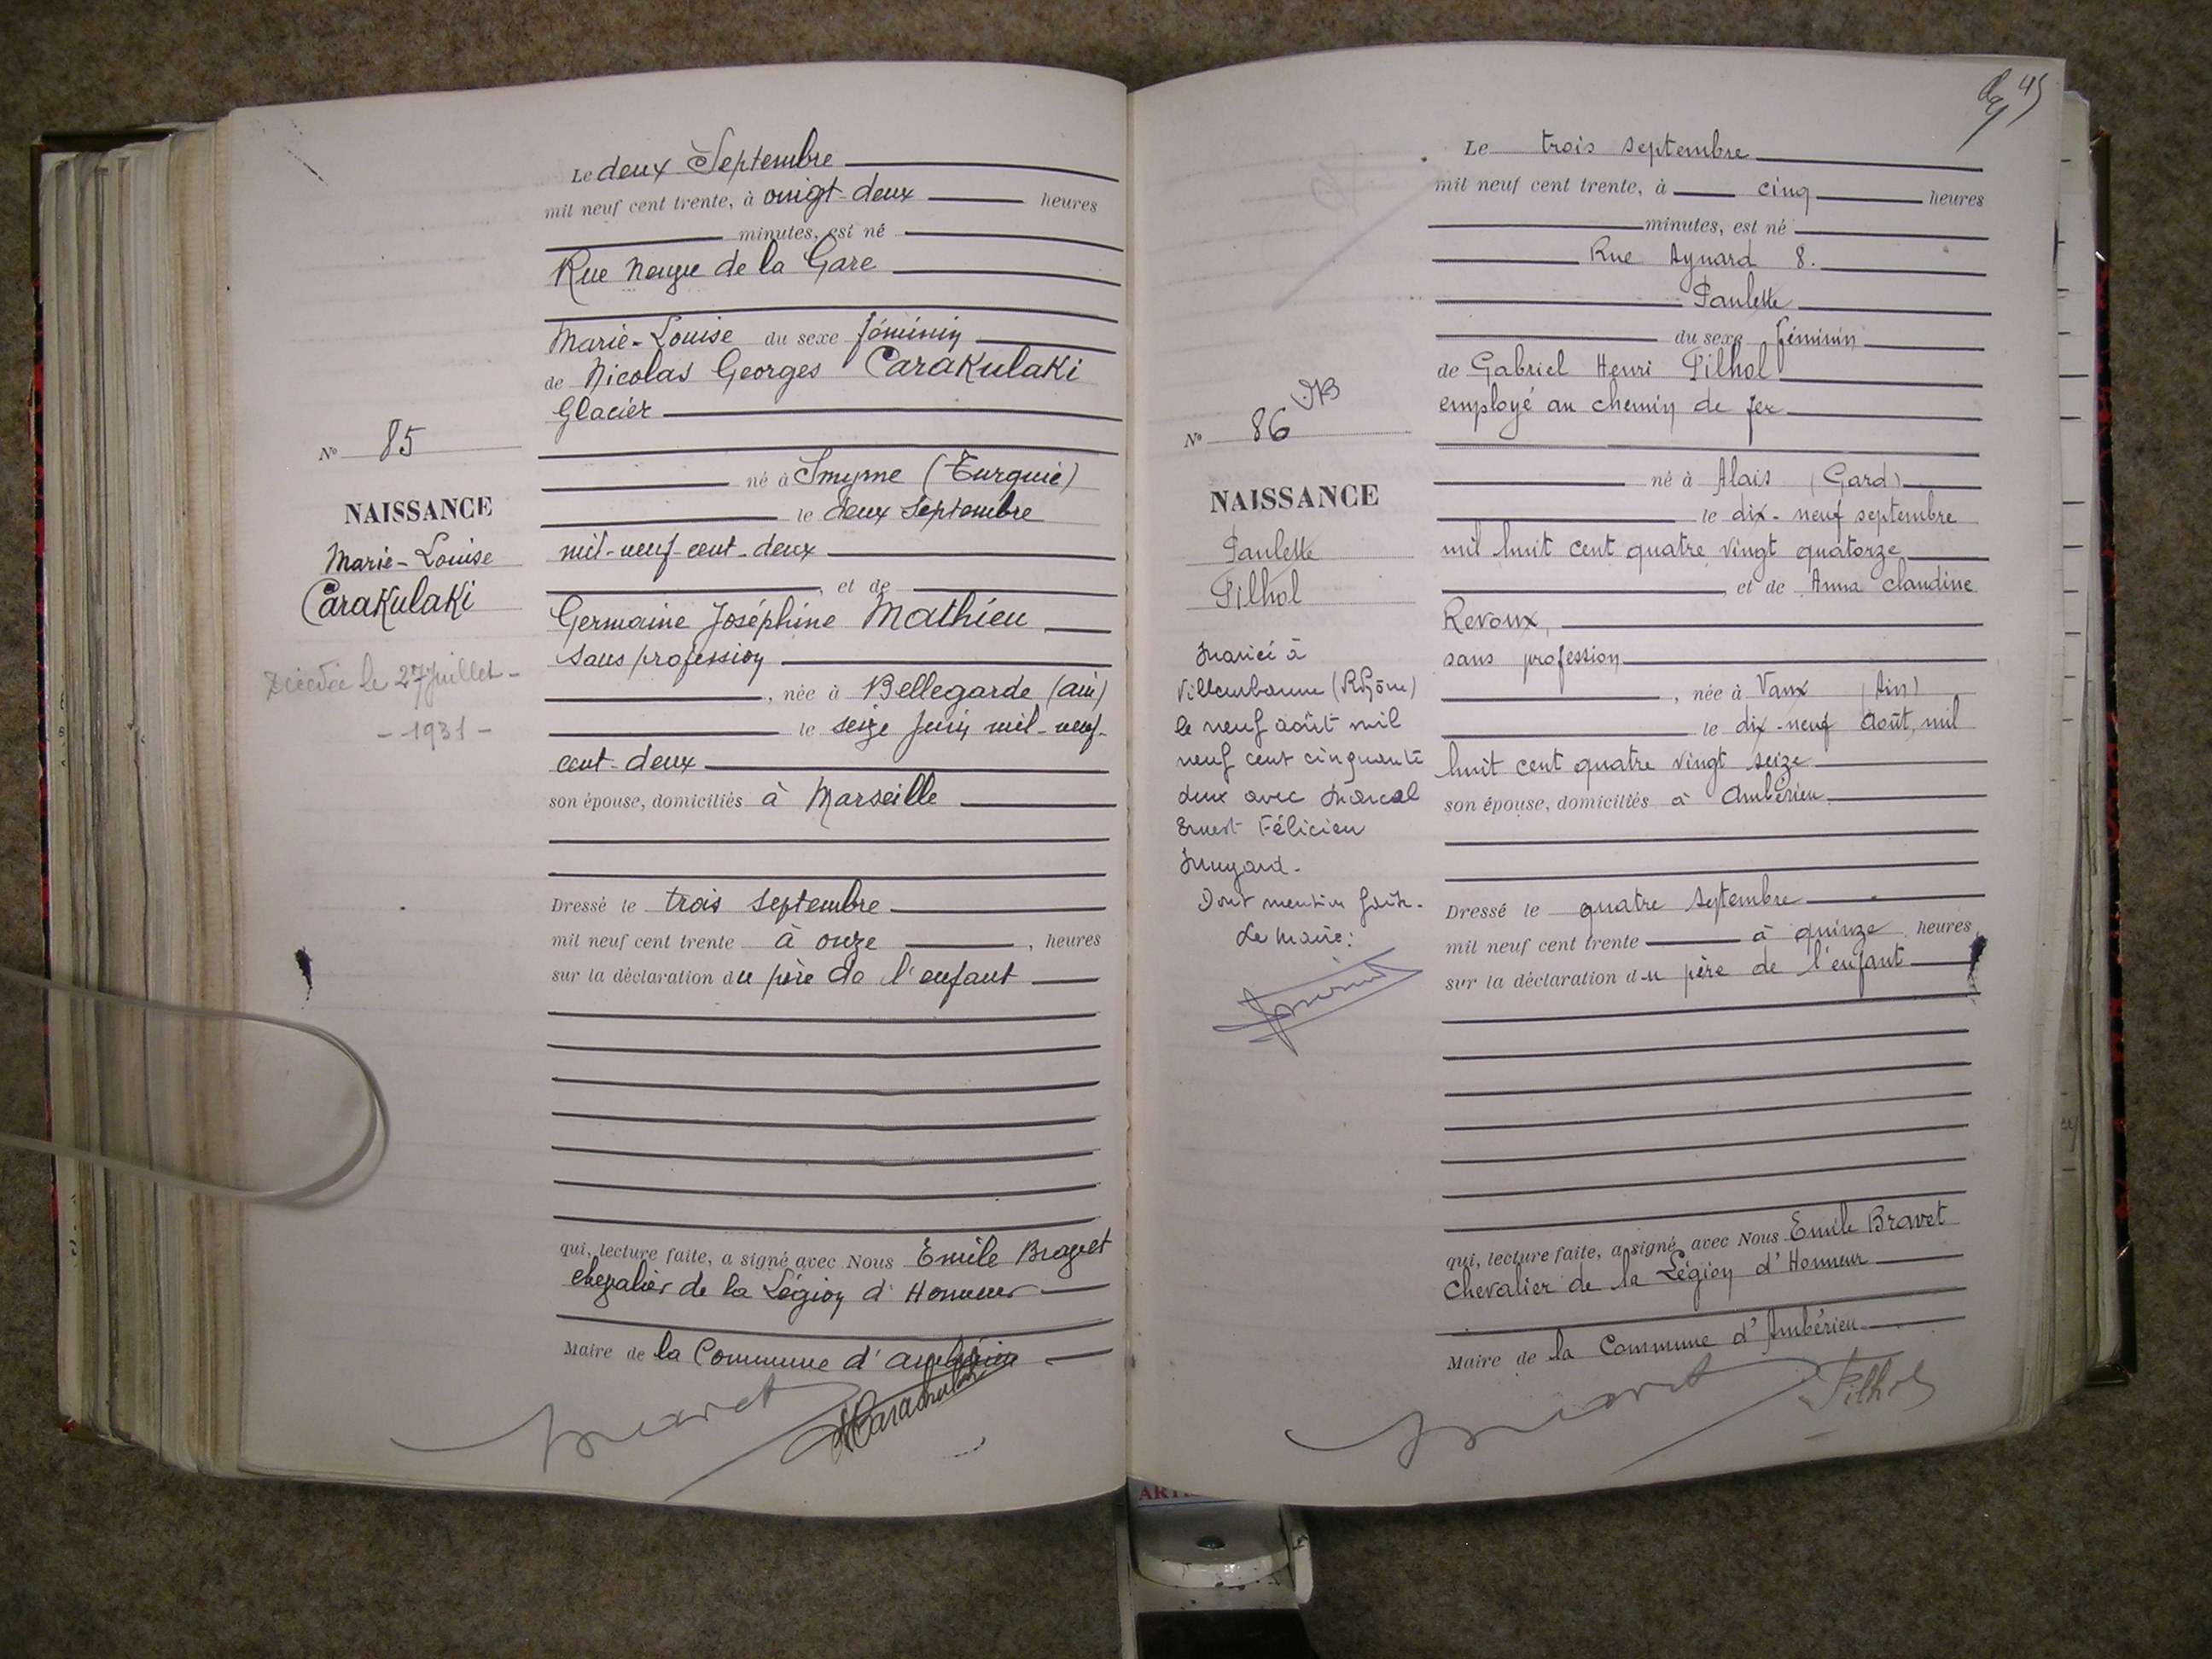 Le deux Septembre
mil neuf cent trente, à vingt-deux heures
minutes, est né
Rue Neuve de la Gare
Marie-Louise du sexe féminin
de Nicolas Georges Carakulaki
Glacier
né à Smyrne (Turquie)
le deux septembre
mil-neuf-cent-deux
, et de
Germaine Joséphine Mathieu
sans profession
, née à Bellegarde (ain)
le seize juin mil-neuf-
cent-deux
son épouse, domiciliés à Marseille
Dressé le trois septembre
mil neuf cent trente à onze, heures
sur la déclaration du père de l'enfant
qui, lecture faite, a signé avec Nous Émile Bravet
chevalier de la Légion d'Honneur
Maire de la Commune d'ambérieu
Bravet
N° 85
NAISSANCE
Marie-Louise
Carakulaki
Décédée le 27 juillet-
- 1931 -
45
Le trois septembre
mil neuf cent trente, à cinq heures
minutes, est né
Rue Aynard 8.
Paulette
du sexe féminin
de Gabriel Henri Pilhol
employé au chemin de fer
né à Alais (Gard)
le dix-neuf septembre
mil huit cent quatre vingt quatorze
, et de Anna Claudine
Revoux,
sans profession
, née à Vaux (Ain)
le dix-neuf Août, mil
huit cent quatre vingt seize
son épouse, domiciliés à Ambérieu
Dressé le quatre septembre
mil neuf cent trente à quinze heures
sur la déclaration d-u père de l'enfant
qui, lecture faite, a signé avec Nous Emile Bravet
Chevalier de la Légion d'Honneur
Maire de la Commune d'Ambérieu
Bravet
Pilhol
N° 86
NAISSANCE
Paulette
Pilhol
Mariée à
Villeurbanne (Rhône)
le neuf août mil
neuf cent cinquante
deux avec Marcel
Ernest Félicien
Muyard.
Dont mention faite.
Le Maire: